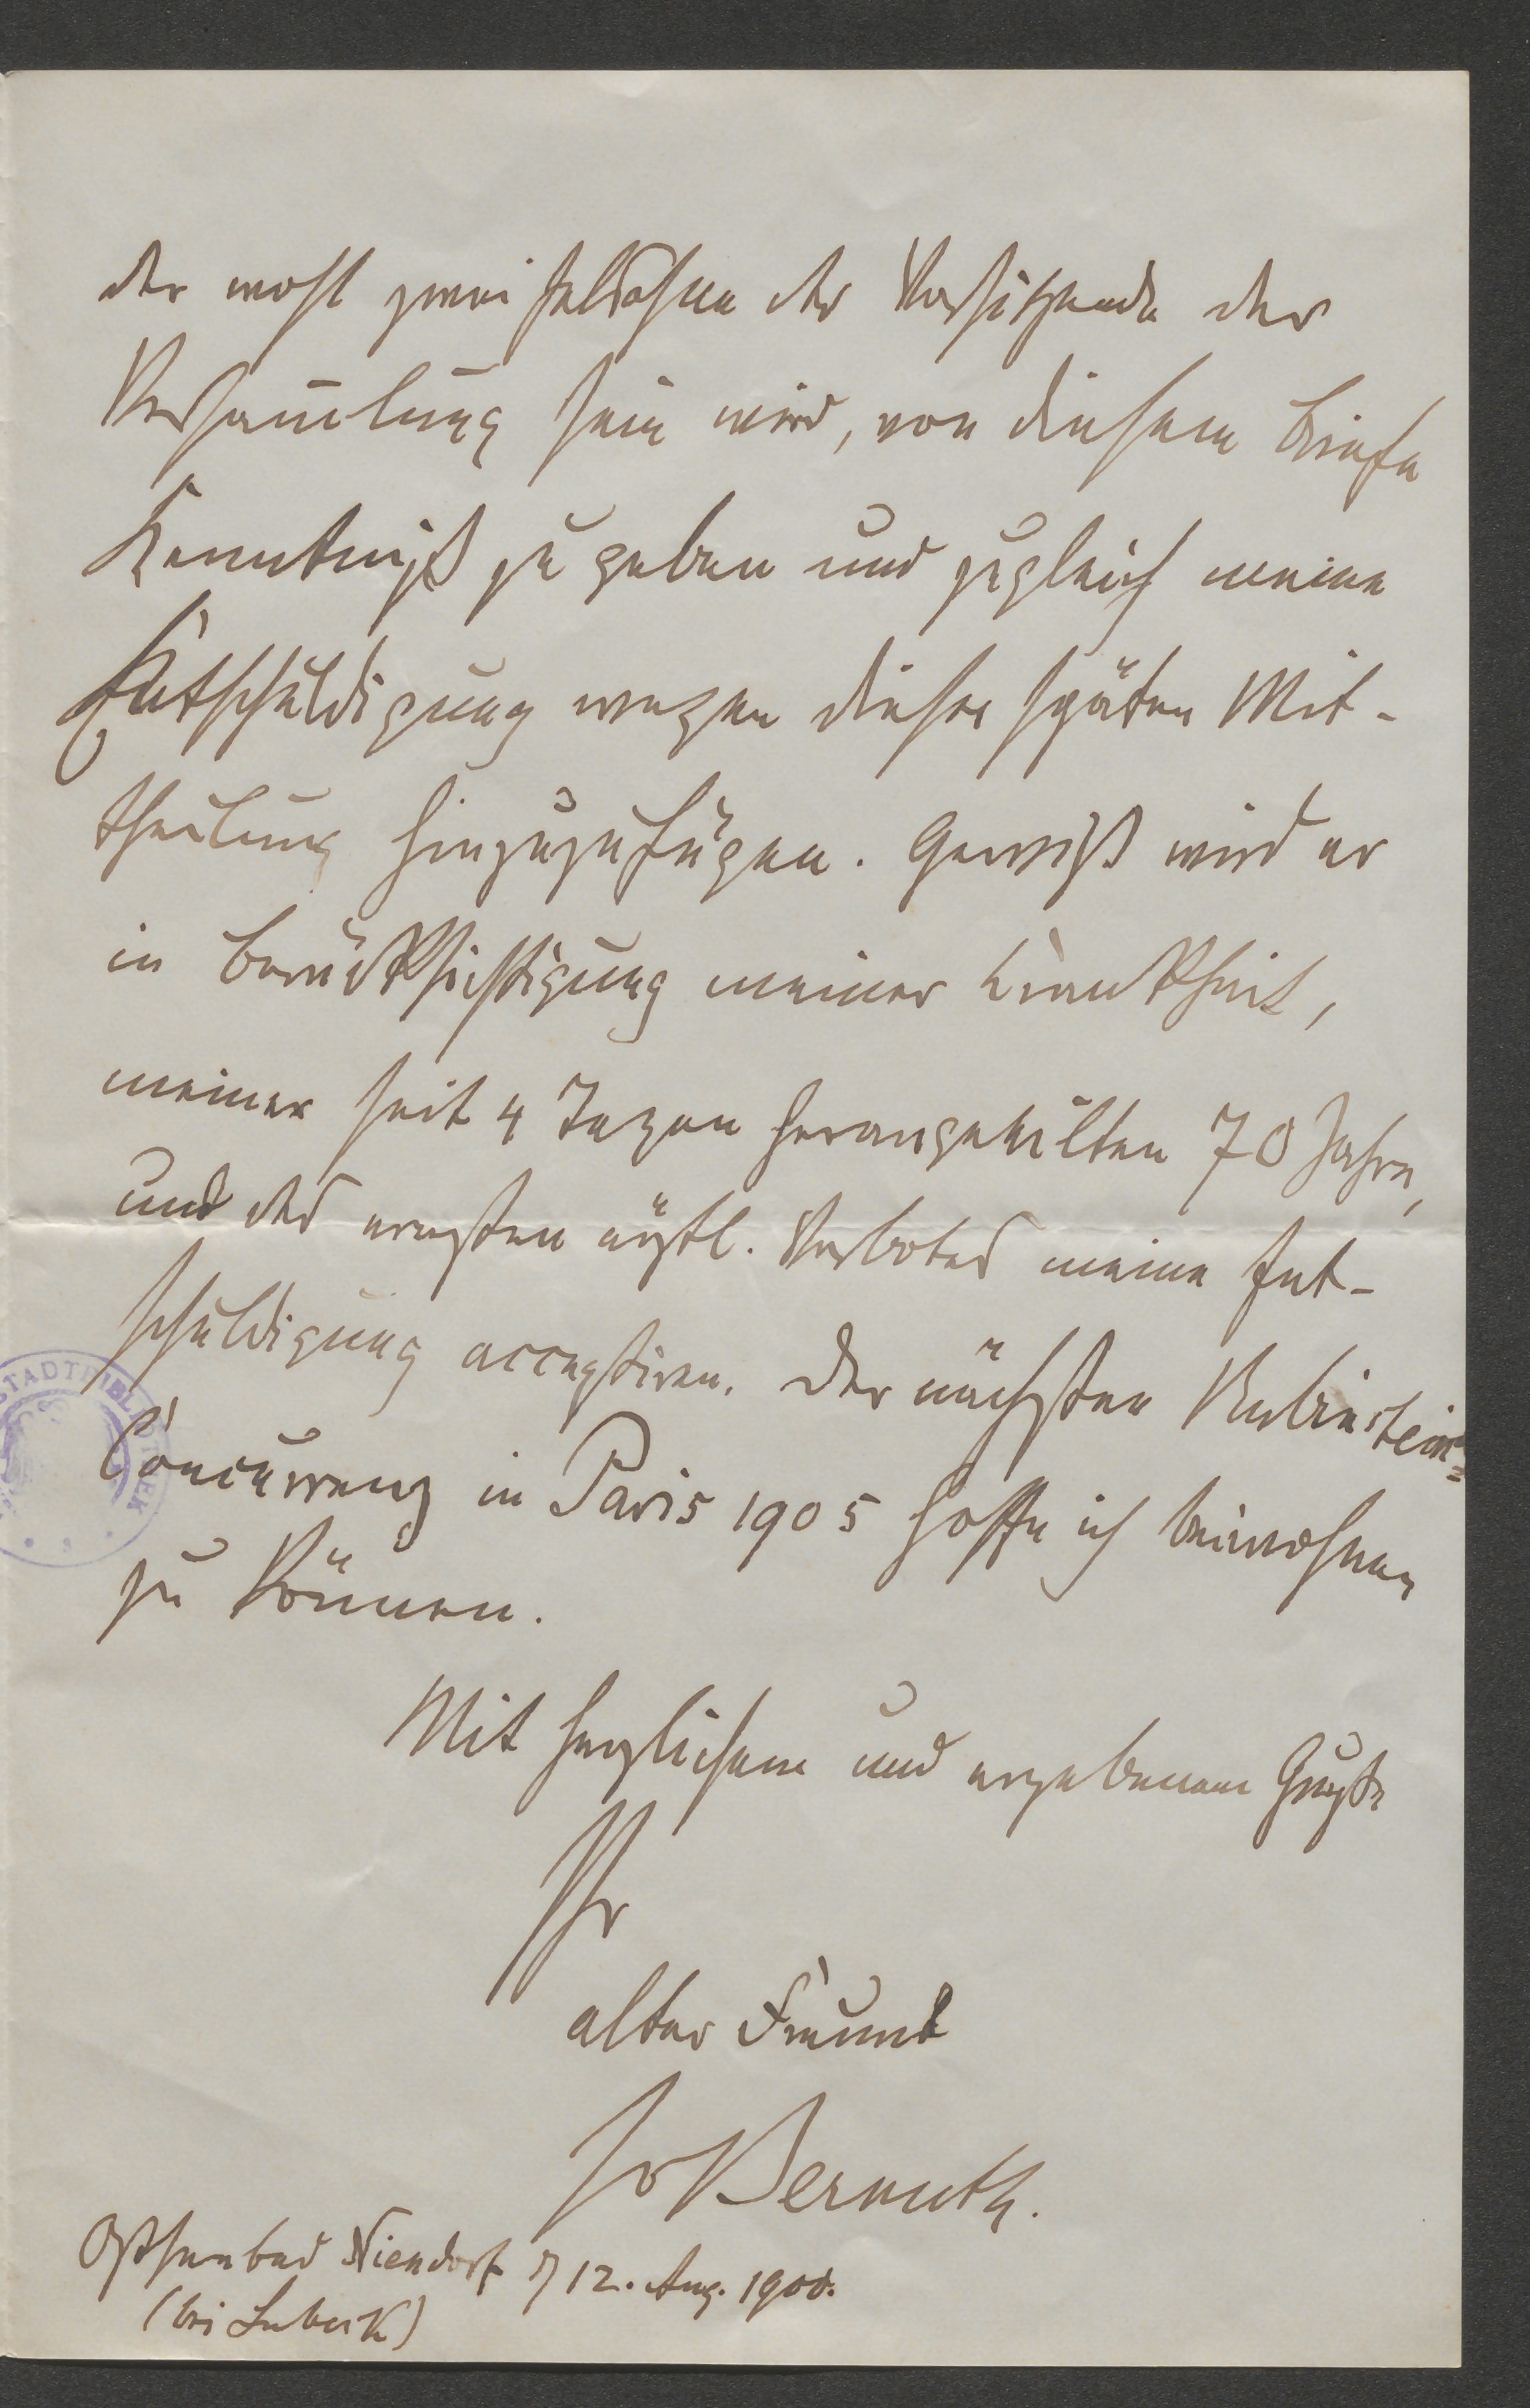 der wohl zweifelsohne der Vorsitzende der
Versam̅lung sein wird, von diesem Briefe
Kenntniß zu geben und zugleich meine
Entschuldigung wegen dieser späten Mit-
theilung hinzuzufügen. Gewiß wird er
in Berücksichtigung meiner Krankheit,
meiner seit 4 Tagen herangeeilten 70 Jahre,
und des ernsten ärztl. Verbotes meine Ent-
schuldigung acceptiren. Der nächsten Rubinstein=
Concurrenz in Paris 1905 hoffe ich beiwohnen
zu können.
Mit herzlichem und ergebenem Gruße
Ihr
alter Freund
JvBernuth.
Ostseebad Niendorf 12. Aug. 1900.
(bei Lubeck)
STADTBIBLIOTHEK